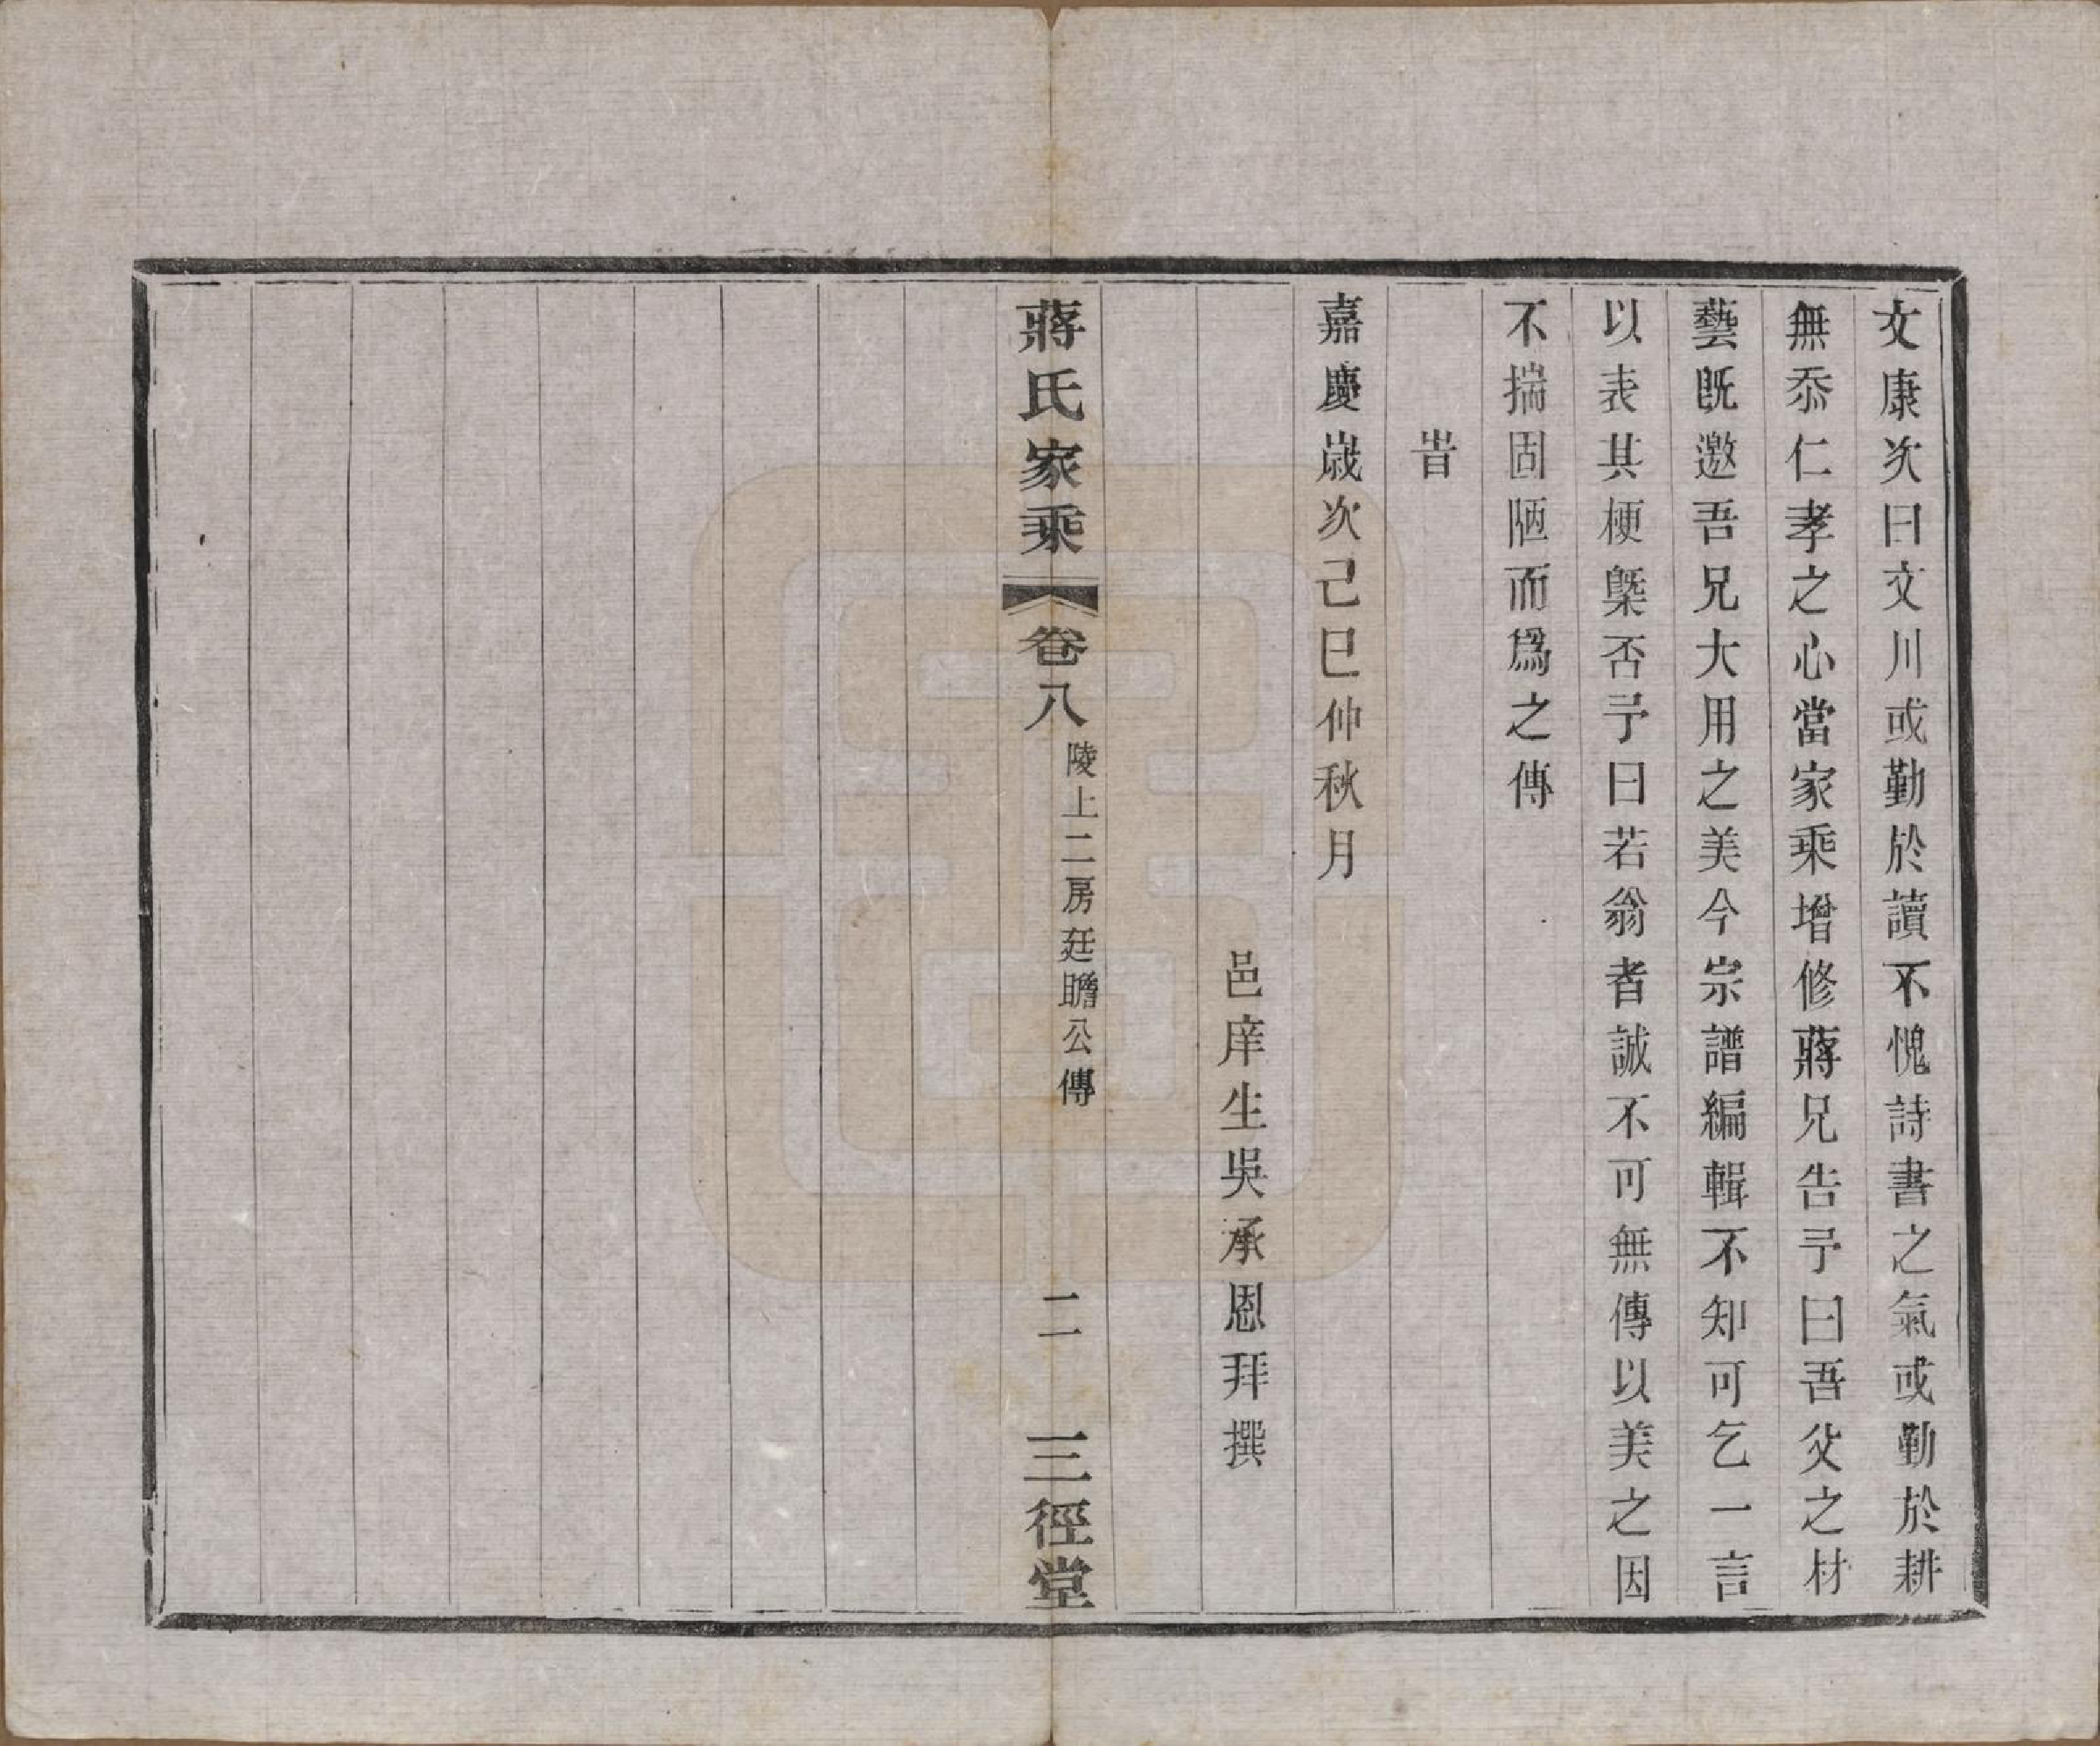 文康次曰文川或勤於讀不愧詩書之氣或勤於耕
無忝仁孝之心當家乘增修蔣兄告予曰吾父之材
藝既邀吾兄大用之美今宗譜編輯不知可乞一言
以表其梗槩否予曰若翁者誠不可無傳以美之因
不揣固陋而爲之傳
旹
嘉慶歲次己巳仲秋月
邑庠生吳承恩拜撰
蔣氏家乘 卷八 陵上二房廷瞻公傳 二 三徑堂